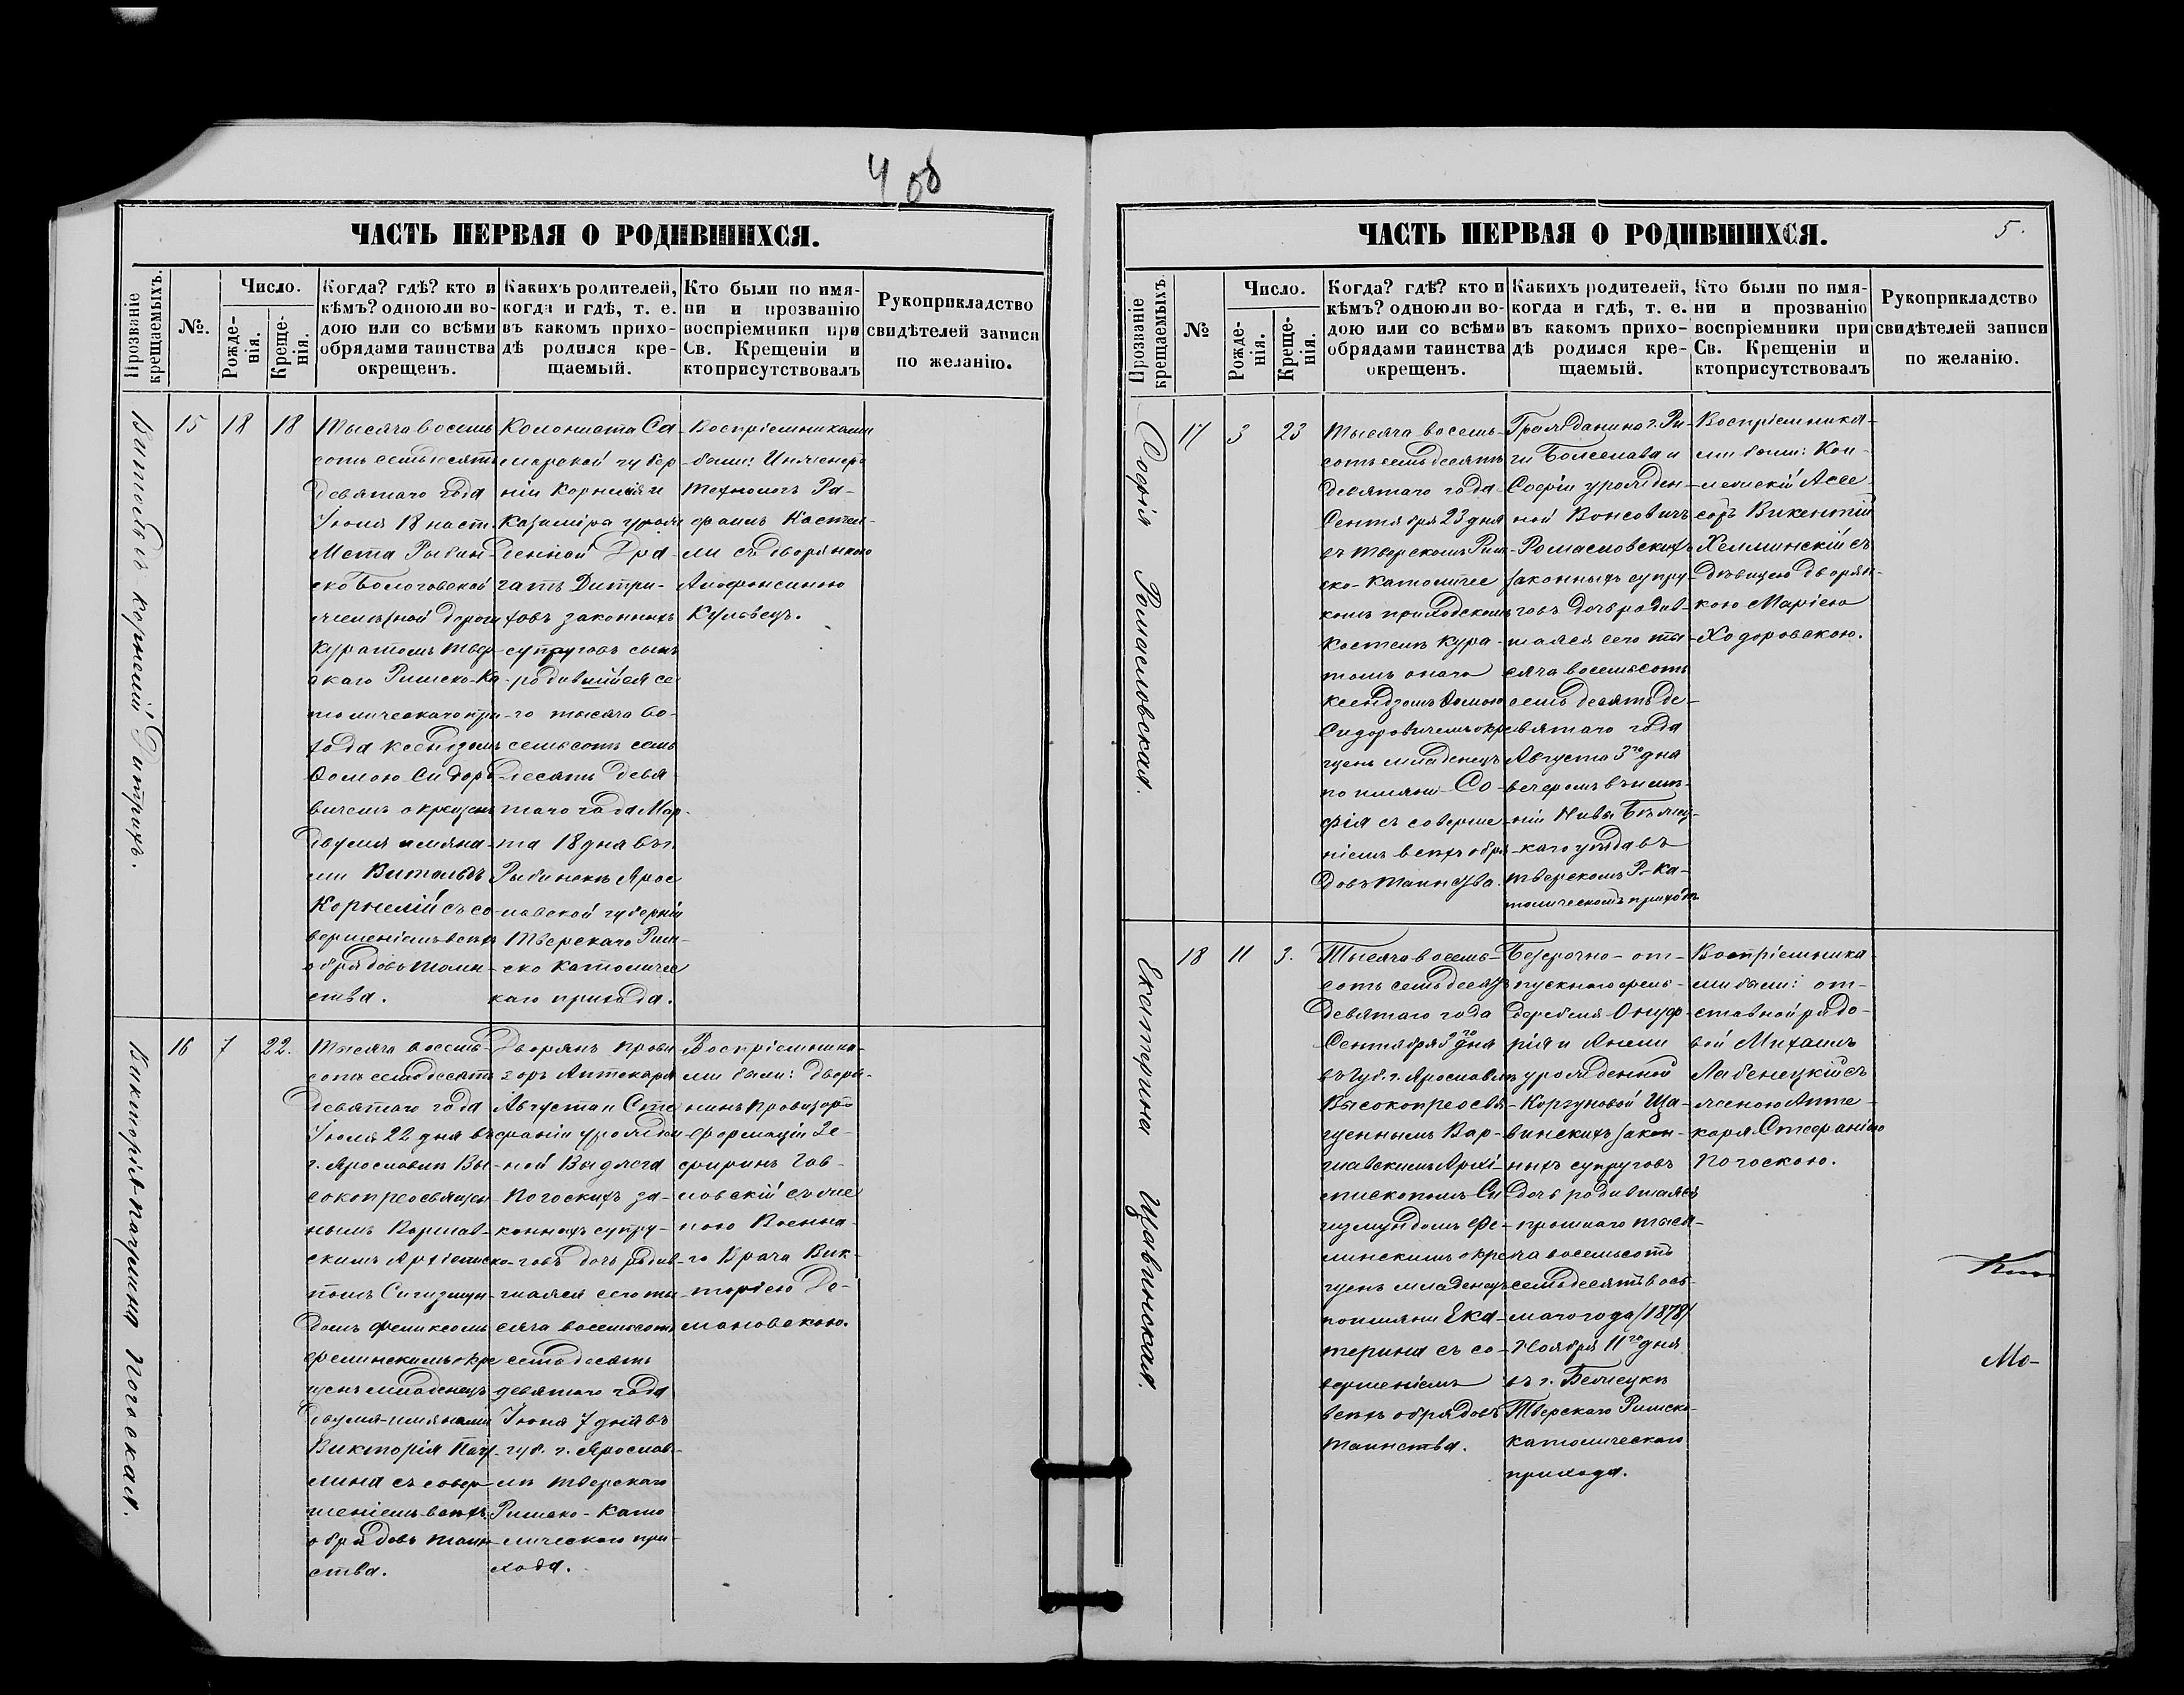 4 об
ЧАСТЬ ПЕРВАЯ О РОДИВШИХСЯ.
Прозваніе
крещаемыхъ.
№.
Число.
Рожде-
нія.
Креще-
нія.
Когда? гдѣ? кто и
кѣмъ? одноюли во-
дою или со всѣми
обрядами таинства
окрещенъ.
Какихъ родителей,
когда и гдѣ, т. е.
въ какомъ прихо-
дѣ родился кре-
щаемый.
Кто были по имя-
ни и прозванію
воспріемники при
Св. Крещеніи и
кто присутствовалъ
Рукоприкладство
свидѣтелей записи
по желанію.
Витольдъ Корнелій
15
18
18
Тысяча восемь
сотъ семьдесятъ
девятаго года
Іюля 18 наст.
Мста Рыбин-
ско Бологовской
желѣзной дороги
Куратомъ Твер-
скаго Римско-Ка-
толическаго при-
хода Ксендзомъ
Ѳомою Сидоро-
вичемъ окрещенъ
двумя имяна-
ми Витольдъ
Корнелій съ со-
вершеніемъ всѣхъ
обрядовъ таин-
ства.
Колониста Са-
марской губер
ніи Корнелія и
Казиміра урож
денной
законныхъ
супруговъ сынъ
родившійся се
го тысяча во-
семьсотъ семь
десятъ девя
таго года Мар-
та 18 дня въ г.
Рыбинскѣ Яро
славской губерніи
Тверскаго Рим-
ско Католичес
каго прихода.
Воспріемниками
были: Инженеръ
Технологъ Ра-
фаилъ
съ дворянкою
Альфонсиною
Кульвецъ.
Викторія-Паулина Погоская.
16
7
22.
Тысяча восемь-
сотъ семьдесятъ
девятаго года
Іюля 22 дня въ
г. Ярославлѣ Вы-
сокопреосвящен
нымъ Варшав-
скимъ Архіеписко-
помъ Сигизмун-
домъ Феликсомъ
Фелинскимъ окре
щенъ младенецъ
двумя-имянами
Викторія Пау-
лина съ совер-
шеніемъ всѣхъ
обрядовъ таин-
ства.
Дворянъ прови
зоръ Аптекаря
Августа и Сте
фаніи урожден
ной
Погоскихъ за-
конныхъ супру-
говъ дочь родив-
шаяся сего ты
сяча восемьсотъ
семьдесятъ
девятаго года
Іюня 7 дня въ
губ. г. Ярослав-
лѣ Тверскаго
Римско-Като
лическаго при-
хода.
Воспріемника-
ми были: дворя-
нинъ Провизоръ
Фармаціи Зе-
фиринъ
съ же
ною Военна-
го Врача Вик-
торіею До-
мановскою.
5.
ЧАСТЬ ПЕРВАЯ О РОДИВШИХСЯ.
Прозваніе
крещаемыхъ.
№
Число.
Рожде-
нія.
Креще-
нія.
Когда? гдѣ? кто и
кѣмъ? одноюли во-
дою или со всѣми
обрядами таинства
окрещенъ.
Какихъ родителей,
когда и гдѣ, т. е.
въ какомъ прихо-
дѣ родился кре-
щаемый.
Кто были по имя-
ни и прозванію
воспріемники при
Св. Крещеніи и
кто присутствовалъ
Рукоприкладство
свидѣтелей записи
по желанію.
Софія Ромасловская.
17
3
23
Тысяча восемь-
сотъ семьдесятъ
девятаго года
Сентября 23 дня
въ Тверскомъ Рим-
ско-Католичес
комъ приходскомъ
костелѣ Кура-
томъ онаго
Ксендзомъ Ѳомою
Сидоровичемъ окре
щенъ младенецъ
по имяни Со-
фія съ соверше-
ніемъ всѣхъ обря-
довъ таинства.
Гражданина г. Ри-
ги Болеслава и
Софіи урожден-
ной Вонсовичъ
Ромасловскихъ
законныхъ супру-
говъ дочь родив-
шаяся сего ты-
сяча восемьсотъ
семьдесятъ де-
вятаго года
Августа 3го дня
вечеромъ въ имѣ-
ніи Нивы Бѣжец-
каго уѣзда въ
Тверскомъ Р-Ка-
толическомъ приходѣ
Воспріемника-
ми были: Кол-
лежскій Ассе-
соръ Викентій
Хелминскій съ
дѣвицею дворян-
кою Маріею
Ходоровскою.
Екатерина Щавинская.
18
11
3.
Тысяча восемь-
сотъ семьдесятъ
девятаго года
Сентября 3го дня
въ Губ. г. Ярославлѣ
Высокопреосвя-
щеннымъ Вар-
шавскимъ Архі-
епископомъ Си
гизмундомъ Фе-
линскимъ окре
щенъ младенецъ
по имяни Ека-
терина съ со-
вершеніемъ
всѣхъ обрядовъ
таинства.
Безсрочно-от-
пускного фель-
дфебеля Онуф-
рія и Анели
урожденной
Коргуновой Ща-
винскихъ закон-
ныхъ супруговъ
дочь родившаяся
прошлаго тыся-
ча восемьсотъ
семьдесятъ вось-
маго года /1878/
Ноября 11го дня
въ г. Бежецкѣ
Тверскаго Римско-
католическаго
прихода.
Воспріемника
ми были: от-
ставной рядо-
вой Михаилъ
Лабенецкій съ
женою Апте-
каря Стефаніею
Погоскою.
Мо-